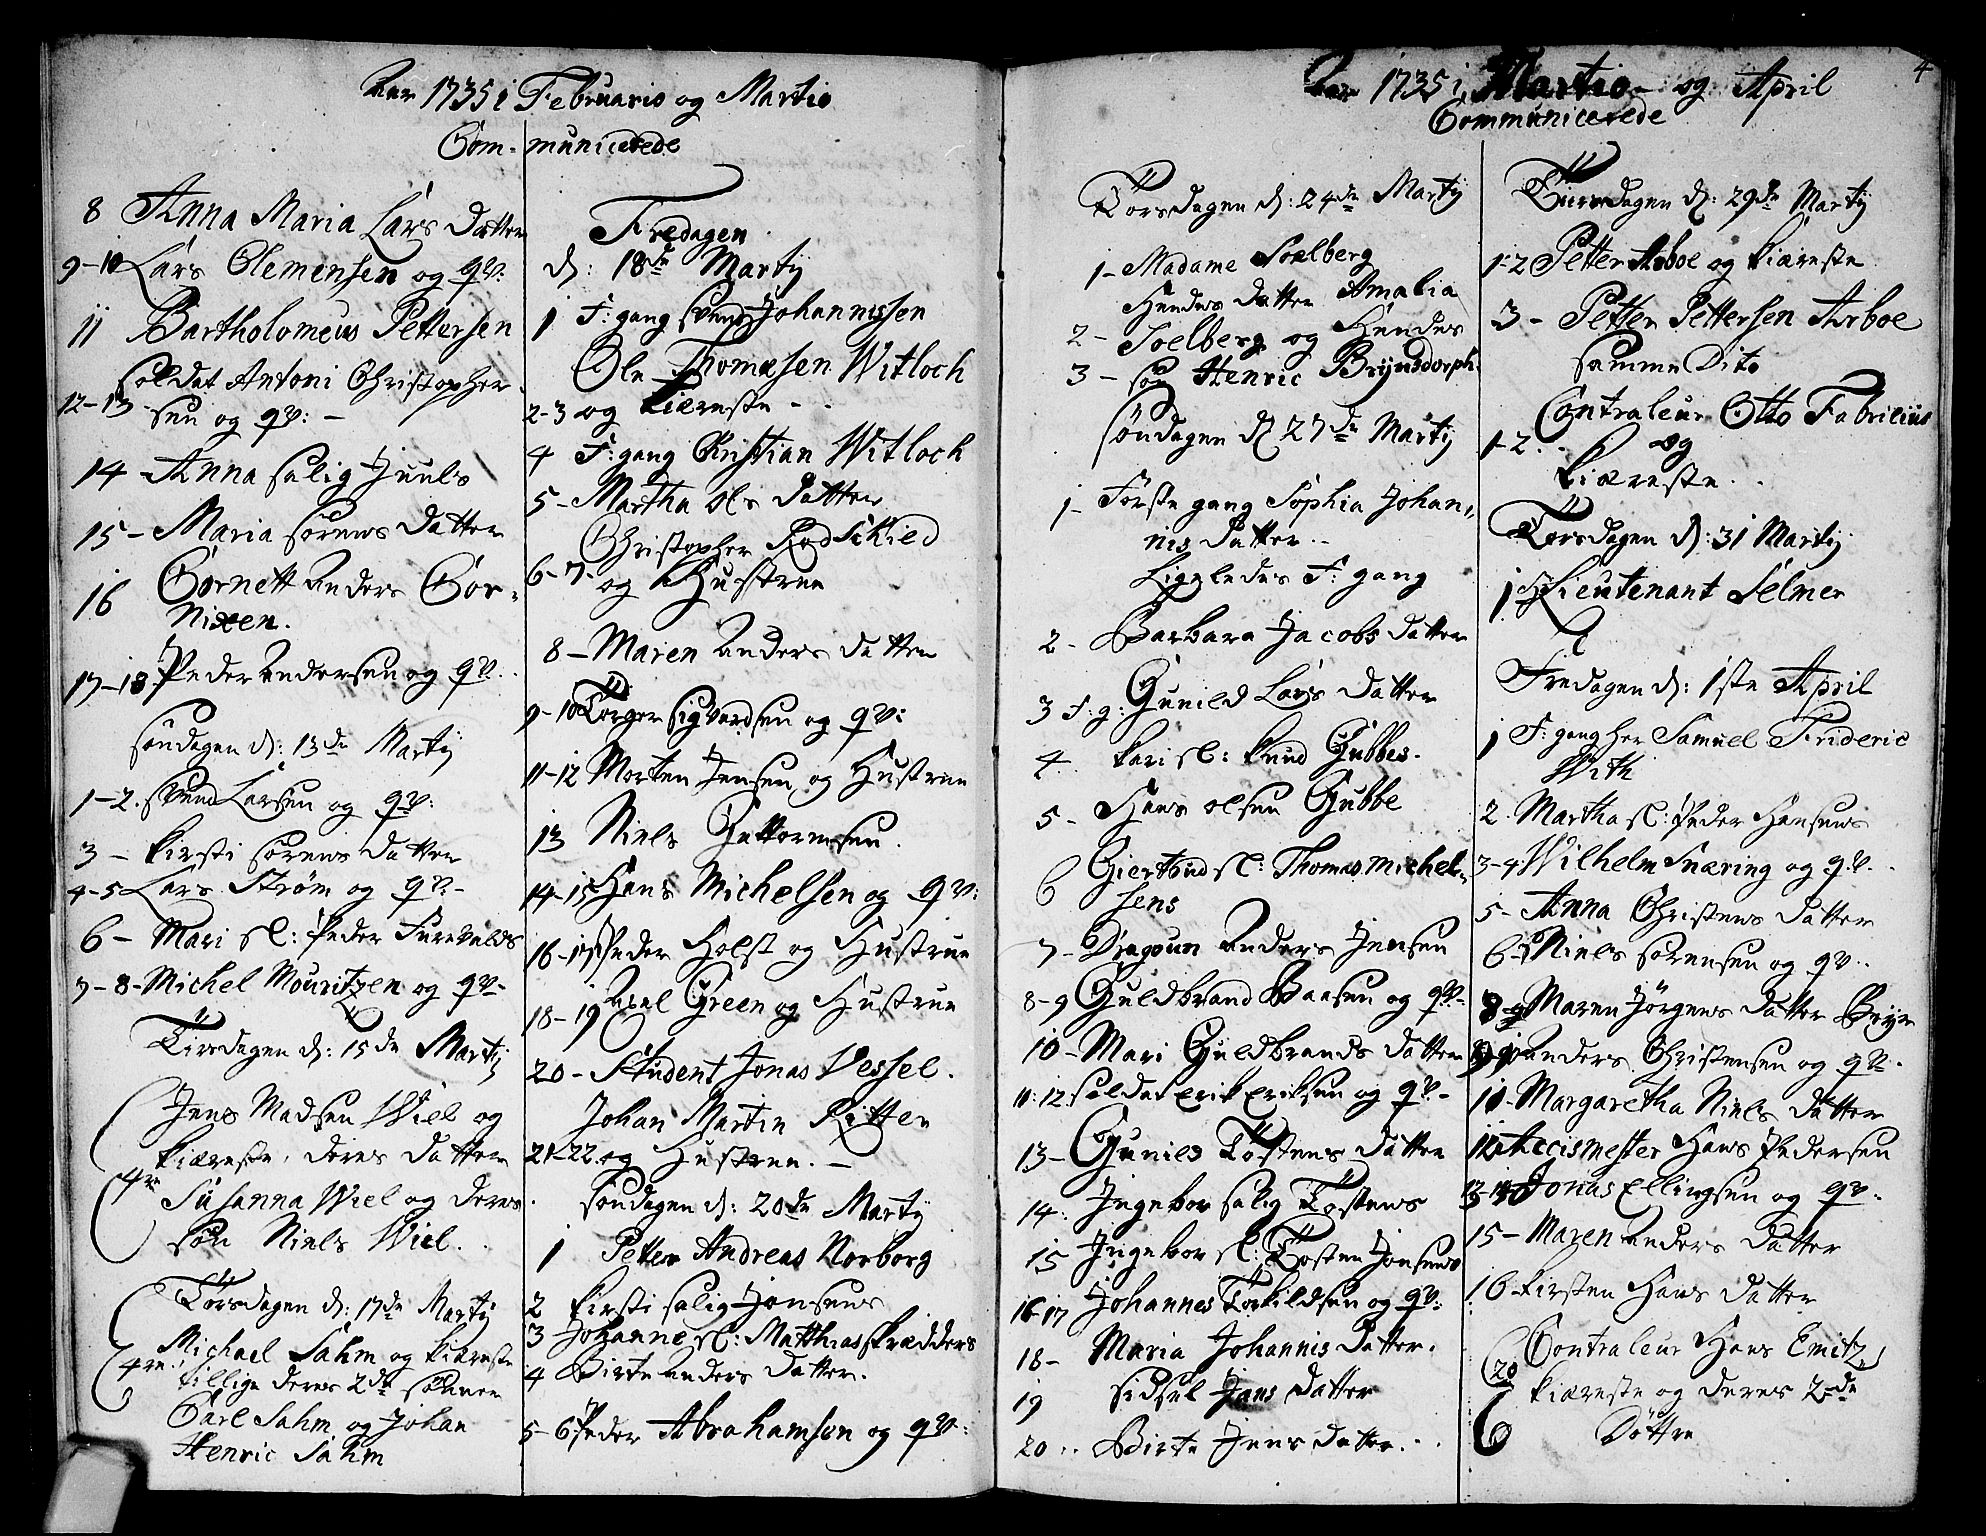 Aar 1735 i Februario og Martio
Com- municerede
8 Anna Maria Lars datter
9-10 Lars Clemensen og qv:
11 Bartholomeus Pettersen
soldat Antoni Christopher-
12-13 sen og qv: -
14 - Anna salig Juuls
15 - Maria sörens datter
16 Cornett Anders Cor-
Nixen.
17-18 Peder Andersen og qv.
söndagen d: 13de Martij
1-2. svend Larsen og qv:
3 - Kirsti sörens datter
4-5 Lars Ström og qv-
6 - Mari sl: Peder Furevalds
7-8- Michel Mouritzen og qv-
Tirsdagen d: 15de Martij
Jens Madsen Wiel og
kiæreste, deres datter
4re Susanna Wiel og deres
sön Niels Wiel.
Torsdagen d: 17de Martij
Michael Sahm og kiæreste
4re tillige deres 2de sönner
Carl Sahm og Johan
Henric Sahm
Fredagen
d: 18de Martij
1 F: gang svend Johannissen
Ole Thomæsen Witloch
2-3 og kiæreste - .
4 F: gang Christian Witloch
5- Martha ols datter
Christopher RodSkied
6-7- og Hustrue
8 - Maren Anders datter
9-10 Torger sigvardsen og qv:
11-12 Morten Jensen og Hustrue
13 Niels Guttormsen.
14-15 Hans Michelsen og qv:
16-17 Peder Holst og Hustrue
18-19 Axel Green og Hustrue
20- Student Jonas Vessel.
Johan Martin Ritter
21-22 og Hustrue. -
söndagen d: 20de Martij
1 Petter Andreas Norborg
2 Kirsti salig Jonsens
3 Johanne sl: Matthias skrædders
4 Birte Anders datter.
5-6 Peder Abrahamsen og qv:
4
Aar 1735 i Martio - og April
Communicerede
Torsdagen d: 24de Martij
1- Madame Soelberg
Hendes datter Amalia
2- Soelberg og Hendes
3 - sön Henric Brynsdorph.
söndagen d 27de Martij
1- Förste gang Sophia Johan-
nis datter..
Ligeledes F: gang
2- Barbara Jacobs datter
3 F: g: Gunild Lars datter
4.. Kari sl: Knud Gubbes.
5- Hans olsen Gubbe
6 Giertrud sl: Thomas Michel-
sens
7- Dragoun Anders Jensen
8-9 Guldbrand Baasen og qv-
10- Mari Guldbrands datter
11:12 soldat Erik Eriksen og qv-
13- Gunild Tostens datter
14: Ingebor salig Tostens
15 Ingebor sl: Tosten Jonsens
16-17 Johannes Torkildsen og qv:
18- Maria Johannis datter.
19 sidsel Jans datter
20 .. Birte Jens datter. . .
Tiirsdagen d: 29de Martij
1-2 Petter Arboe og kiæreste
3- Petter Pettersen Arboe
samme Dito
Contraleur Otto Fabritius
1-2. og
kiæreste. .
Torsdagen d: 31 Martij
1 Lieutenant Selmer
Fredagen d: 1ste April
1 F: gang her Samuel Frideric
With
2. Martha sl: Peder Hansens
3-4 Wilhelm Snæring og qv. .
5- Anna Christens datter
6-7 Niels sörensen og qv..
8 Maren Jörgens datter
Anders Christensen og qv-.
Margaretha Niels datter
12 Accismester Hans Pedersen
13-14 Jonas Ellingsen og qv-.
15- Maren Anders datter
16- Kirsten Hans datter
Contraleur Hans Emitz,
20 kiæreste og deres 2-de
Döttre